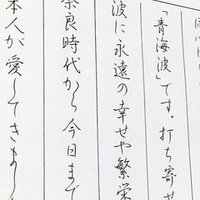 「青海波」です。打ち寄せ
波に永遠の幸せや繁栄
奈良時代から今日まで
本人が愛してきまし